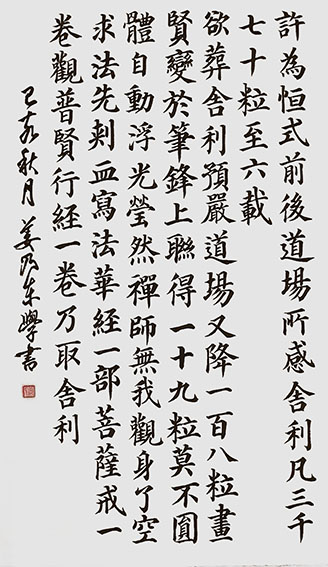 許為恒式前後道場所感舍利凡三千
七十粒至六載
欲葬舍利預嚴道場又降一百八粒畫
賢變於筆鋒上聯得一十九粒莫不圓
體自動浮光瑩然禪師無我觀身了空
求法先刺血寫法華經一部菩薩戒一
卷觀普賢行経一卷乃取舍利
己亥秋月姜乃東學書